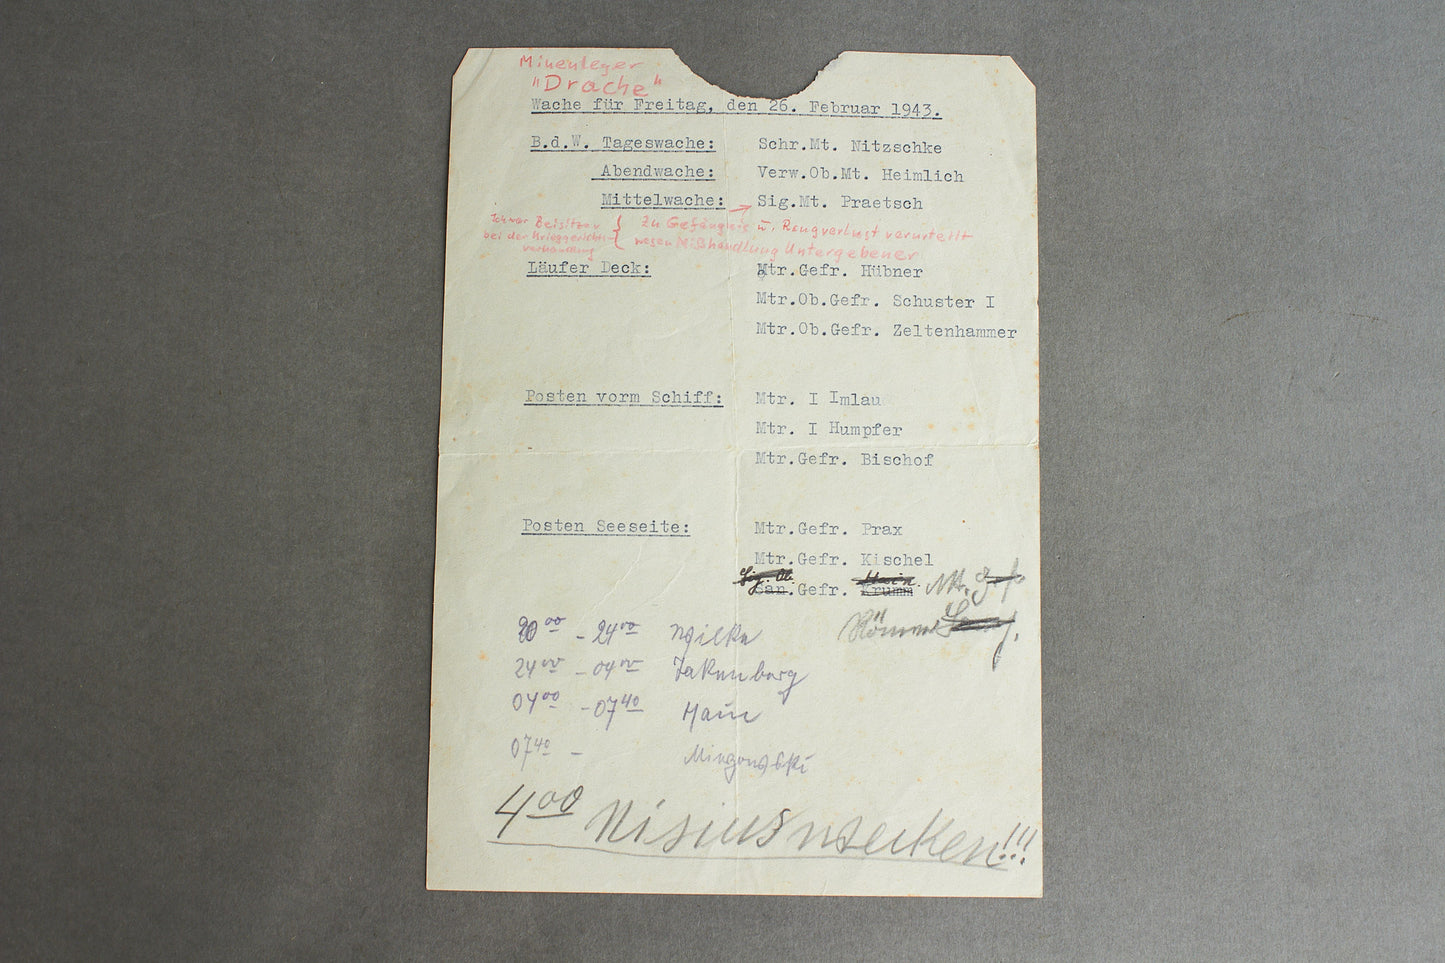 Minenleger
"Drache"
Wache für Freitag, den 26. Februar 1943.
B.d.W. Tageswache: Schr.Mt. Nitzschke
Abendwache: Verw.Ob.Mt. Heimlich
Mittelwache: Sig.Mt. Praetsch
Ich war Beisitzer zu Gefängnis u. Rangverlust verurteilt
bei der Kriegsgerichts- wegen Mißhandlung Untergebener
verhandlung
Läufer Deck: Mtr.Gefr. Hübner
Mtr.Ob.Gefr. Schuster I
Mtr.Ob.Gefr. Zeltenhammer
Posten vorm Schiff: Mtr. I Imlau
Mtr. I Humpfer
Mtr.Gefr. Bischof
Posten Seeseite: Mtr.Gefr. Prax
Mtr.Gefr. Kischel
Sig. Ob. Hain
San.Gefr. Krumm. Mtr. Gefr.
20 00 - 24 00
24 00 - 04 00
04 00 - 07 40 Hain
07 40 -
4 00 Nisius wecken!!!